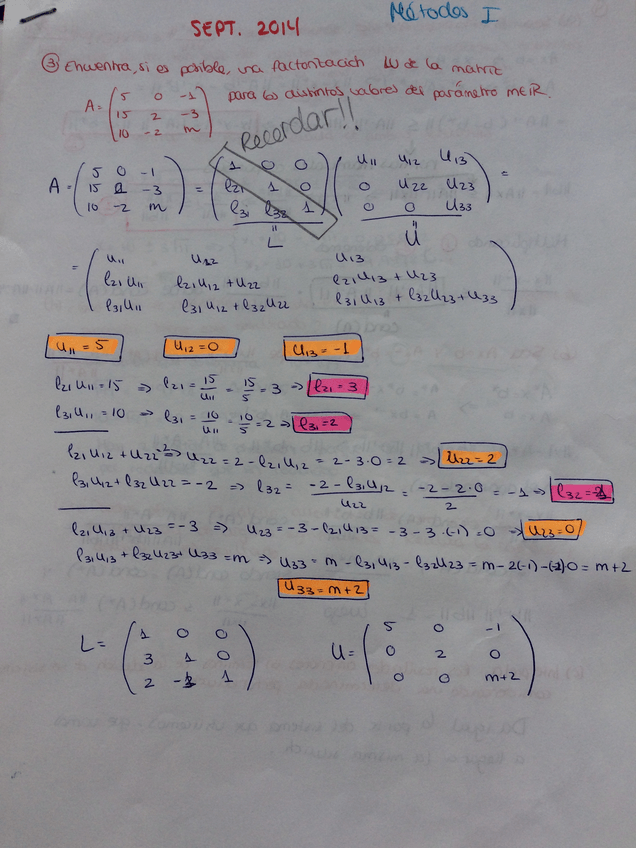 Métodos I
SEPT. 2014
③ Encuentra, si es posible, una factorización LU de la matriz
A = ( 5 0 -1 ; 15 2 -3 ; 10 -2 m ) para los distintos valores del parámetro m∈ℝ.
Recordar!!
A = ( 5 0 -1 ; 15 2 -3 ; 10 -2 m ) = ( 1 0 0 ; l21 1 0 ; l31 l32 1 ) ( u11 u12 u13 ; 0 u22 u23 ; 0 0 u33 ) =
L U
= ( u11 u12 u13 ; l21u11 l21u12+u22 l21u13+u23 ; l31u11 l31u12+l32u22 l31u13+l32u23+u33 )
u11 = 5 u12 = 0 u13 = -1
l21u11 = 15 ⇒ l21 = 15/u11 = 15/5 = 3 ⇒ l21 = 3
l31u11 = 10 ⇒ l31 = 10/u11 = 10/5 = 2 ⇒ l31 = 2
l21u12+u22=2 ⇒ u22 = 2 - l21u12 = 2-3·0 = 2 ⇒ u22 = 2
l31u12+l32u22 = -2 ⇒ l32 = (-2-l31u12)/u22 = (-2-2·0)/2 = -1 ⇒ l32 = -1
l21u13+u23 = -3 ⇒ u23 = -3-l21u13 = -3-3·(-1) = 0 ⇒ u23 = 0
l31u13+l32u23+u33 = m ⇒ u33 = m-l31u13-l32u23 = m-2(-1)-(-1)0 = m+2
u33 = m+2
L = ( 1 0 0 ; 3 1 0 ; 2 -1 1 ) U = ( 5 0 -1 ; 0 2 0 ; 0 0 m+2 )